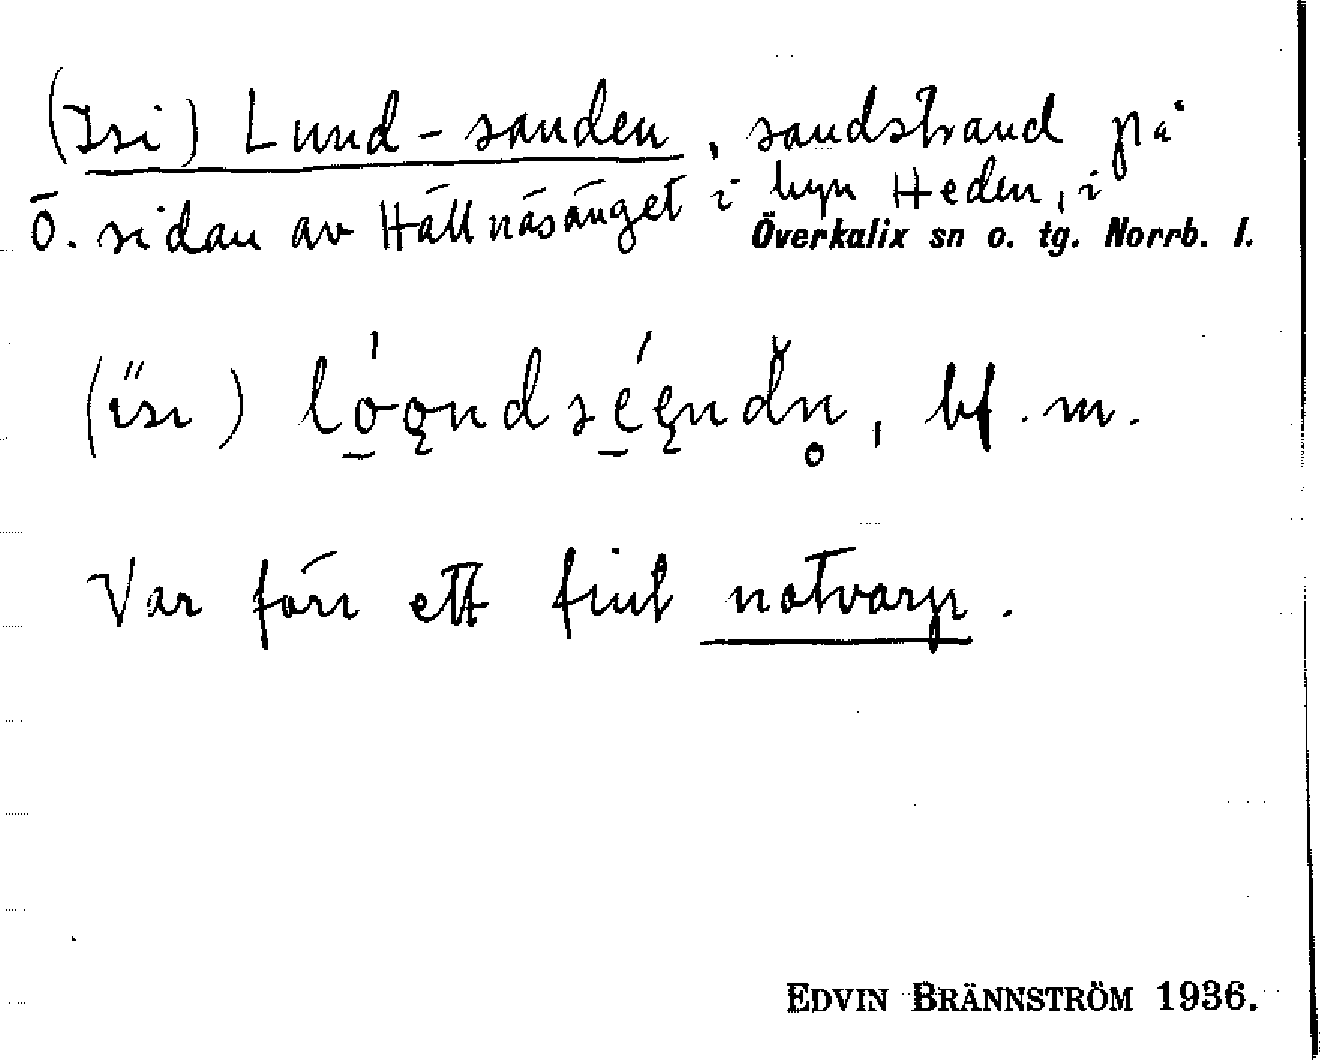 (Isi) Lund-sanden, sandstrand på
Ö. sidan av Hällnäsänget i byn Heden, i
Överkalix sn o. tg. Norrb. l.
(ïsı) lóo̢ndsée̢ndn̥, bf. m.
Var förr ett fint notvarp.
EDVIN BRÄNNSTRÖM 1936.